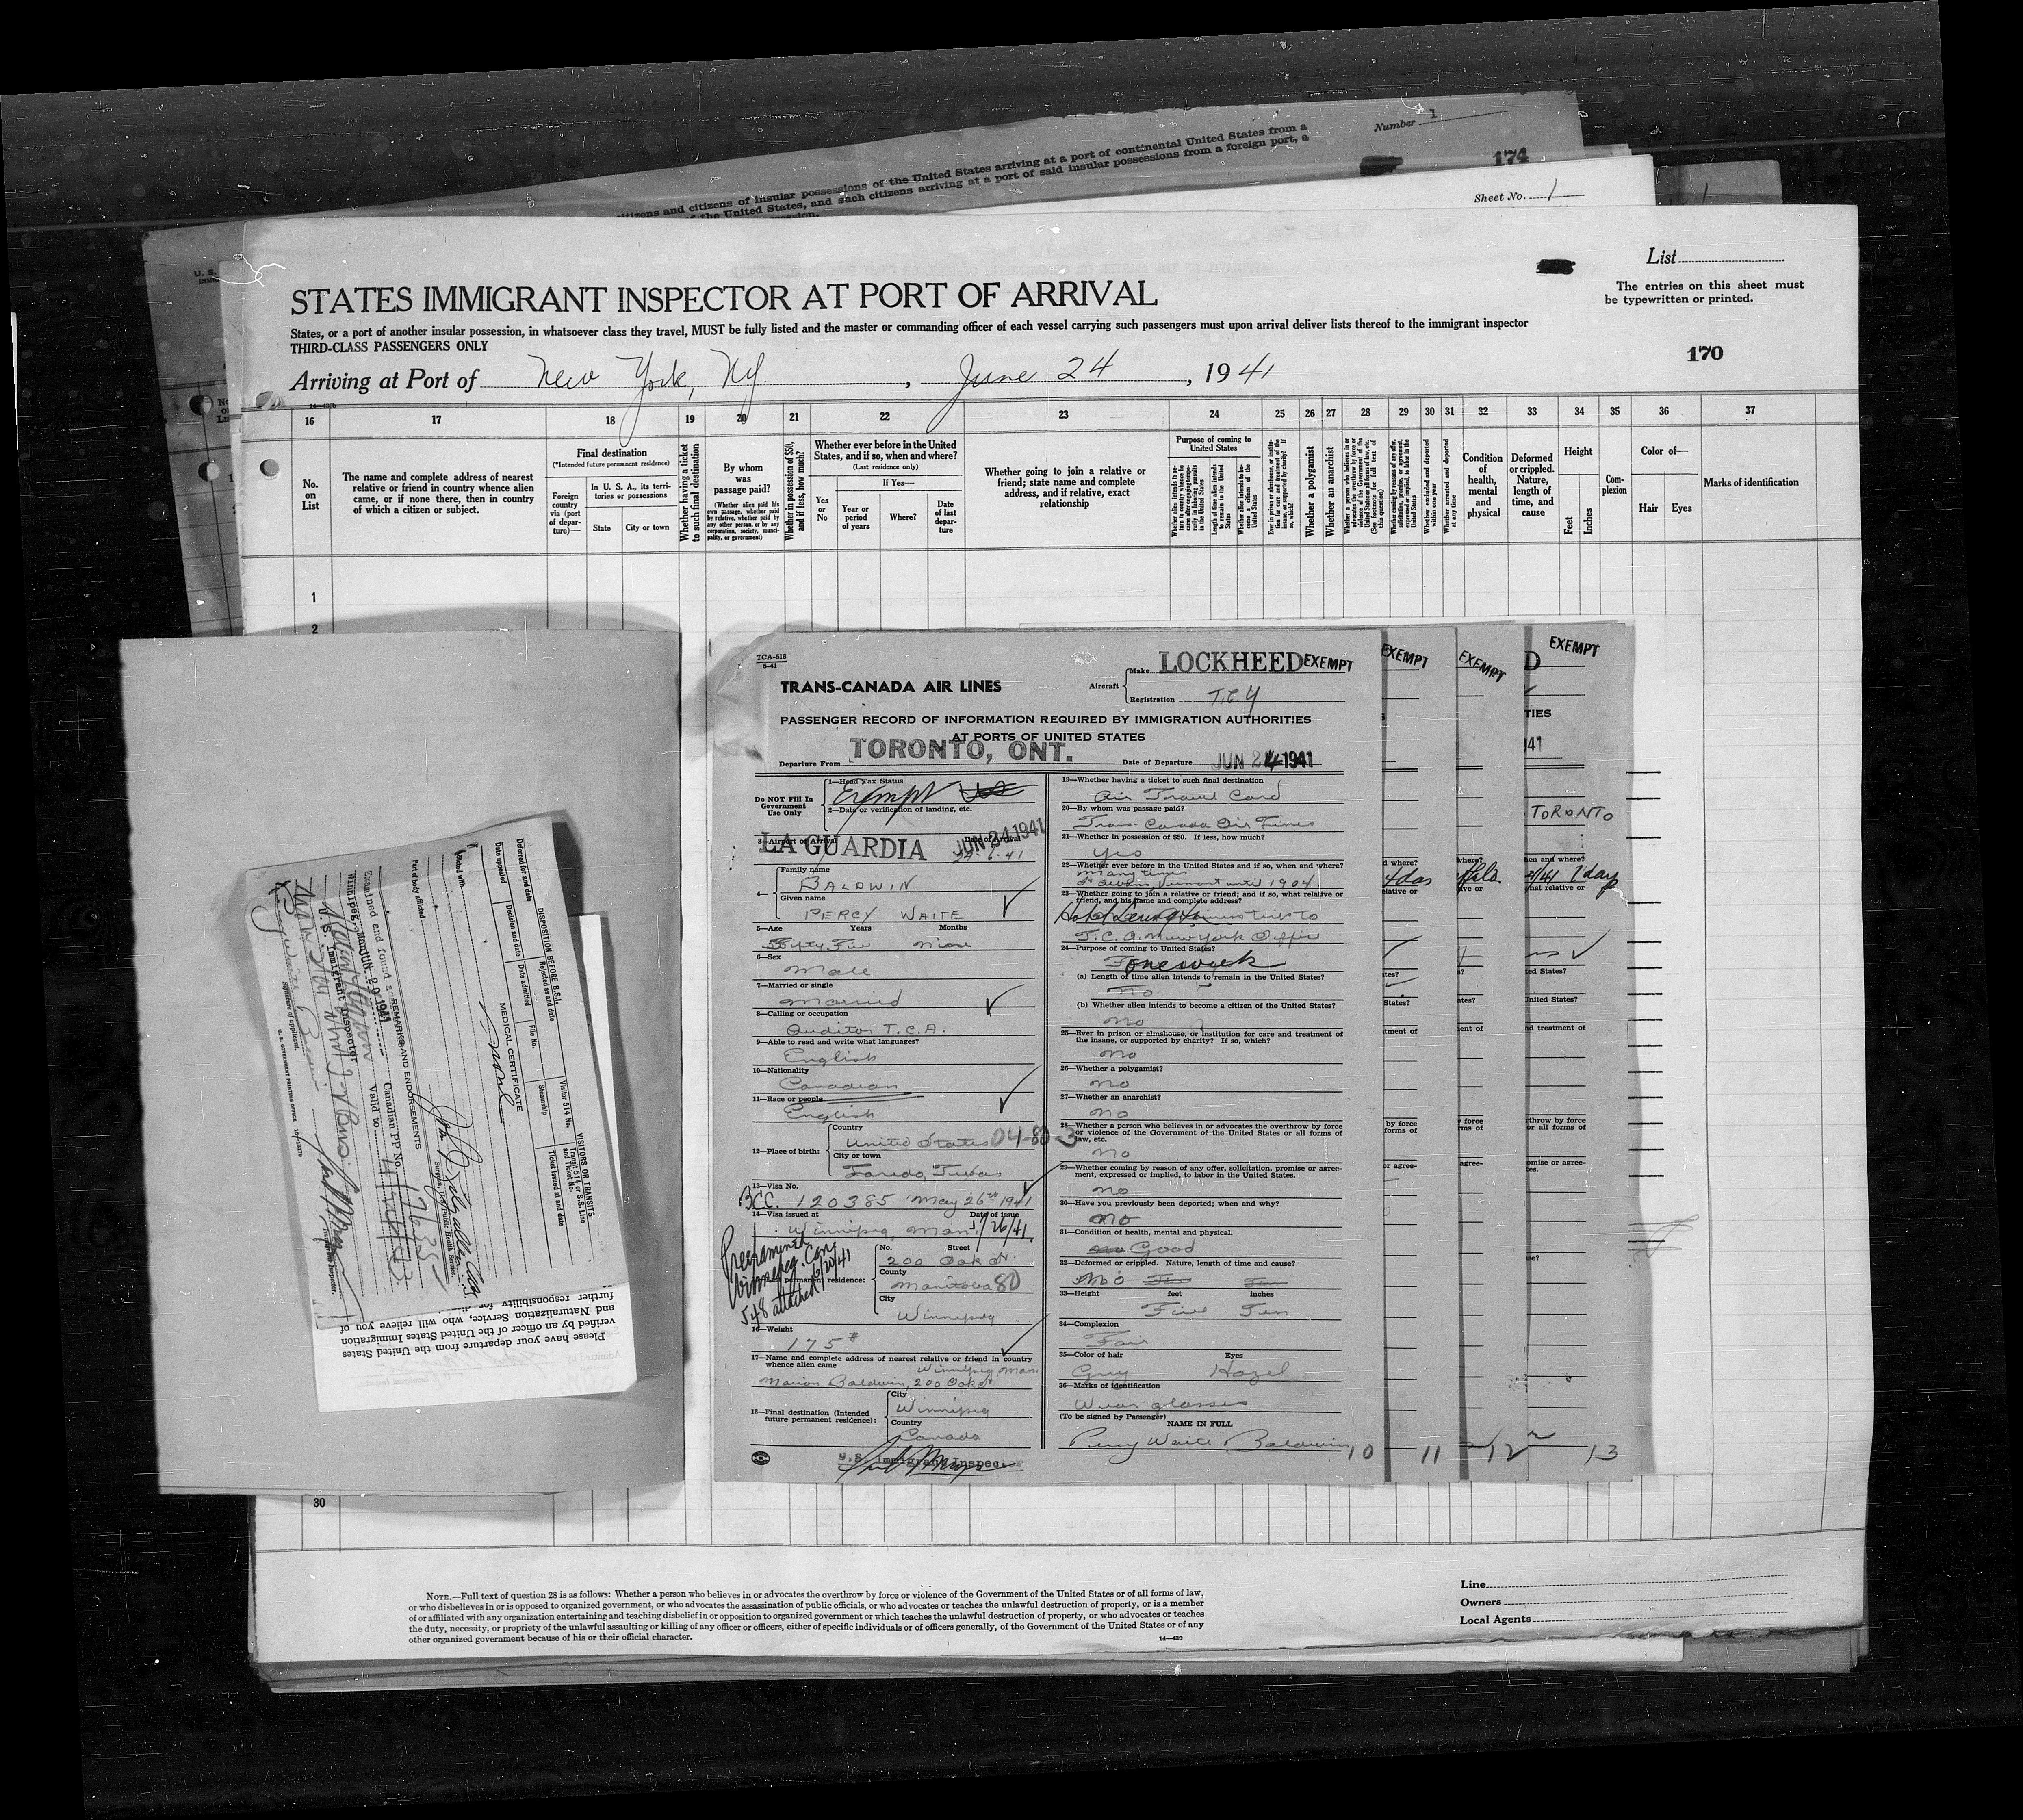 Number 1
itizens and citizens of insular possessions of the United States arriving at a port of continental United States from a
of the United States, and such citizens arriving at a port of said insular possessions from a foreign port, a
174
Sheet No. 1
List
The entries on this sheet must
be typewritten or printed.
STATES IMMIGRANT INSPECTOR AT PORT OF ARRIVAL
States, or a port of another insular possession, in whatsoever class they travel, MUST be fully listed and the master or commanding officer of each vessel carrying such passengers must upon arrival deliver lists thereof to the immigrant inspector
THIRD-CLASS PASSENGERS ONLY
170
Arriving at Port of New York, NY. , June 24 , 1941
16 17 18 19 20 21 22 23 24 25 26 27 28 29 30 31 32 33 34 35 36 37
No. on List
The name and complete address of nearest
relative or friend in country whence alien
came, or if none there, then in country
of which a citizen or subject.
Final destination
(*Intended future permanent residence)
Foreign country via (port of departure)—
In U. S. A., its territories or possessions
State
City or town
Whether having a ticket to such final destination
By whom was passage paid?
(Whether alien paid his own passage, whether paid by relative, whether paid by any other person, or by any corporation, society, municipality, or government)
Whether in possession of $50, and if less, how much?
Whether ever before in the United
States, and if so, when and where?
(Last residence only)
Yes or No
If Yes—
Year or period of years
Where?
Date of last departure
Whether going to join a relative or
friend; state name and complete
address, and if relative, exact
relationship
Purpose of coming to United States
Whether a polygamist
Whether an anarchist
Condition of health, mental and physical
Deformed or crippled. Nature, length of time, and cause
Height
Feet
Inches
Complexion
Color of—
Hair
Eyes
Marks of identification
1
2
30
TCA-518
5-41
TRANS-CANADA AIR LINES
Aircraft
Make LOCKHEED EXEMPT
Registration T.C.Y
PASSENGER RECORD OF INFORMATION REQUIRED BY IMMIGRATION AUTHORITIES
AT PORTS OF UNITED STATES
Departure From TORONTO, ONT.
Date of Departure JUN 24 1941
Do NOT Fill In
Government
Use Only
1—Head Tax Status
Exempt
2—Date or verification of landing, etc.
3—Airport of Arrival
LA GUARDIA JUN 24 1941
4—
Family name
BALDWIN
Given name
PERCY WAITE
5—Age Years Months
Fifty Five Nine
6—Sex
Male
7—Married or single
Married
8—Calling or occupation
Auditor T.C.A.
9—Able to read and write what languages?
English
10—Nationality
Canadian
11—Race or people
English
12—Place of birth:
Country
United States 04-80-3
City or town
Laredo, Texas
13—Visa No.
BCC. 120385 May 26th 1941
14—Visa issued at Date of issue
Winnipeg, Man. 5/26/41.
Preexamined
Winnipeg. Can.
6/20/41
548 attached
permanent residence:
No. Street
200 Oak St.
County
Manitoba 80
City
Winnipeg
16—Weight
175#
17—Name and complete address of nearest relative or friend in country
whence alien came
Winnipeg Man.
Marion Baldwin, 200 Oak St.
18—Final destination (Intended
future permanent residence):
City
Winnipeg
Country
Canada
U.S. Immigrant Inspector
19—Whether having a ticket to such final destination
Air Travel Card
20—By whom was passage paid?
Trans-Canada Air Lines
21—Whether in possession of $50. If less, how much?
Yes
22—Whether ever before in the United States and if so, when and where?
many times
St Albans, Vermont until 1904
23—Whether going to join a relative or friend; and if so, what relative or
friend, and his name and complete address?
T.C.A. New York Office
24—Purpose of coming to United States?
one week
(a) Length of time alien intends to remain in the United States?
No
(b) Whether alien intends to become a citizen of the United States?
No
25—Ever in prison or almshouse, or institution for care and treatment of
the insane, or supported by charity? If so, which?
No
26—Whether a polygamist?
No
27—Whether an anarchist?
No
28—Whether a person who believes in or advocates the overthrow by force
or violence of the Government of the United States or all forms of
law, etc.
No
29—Whether coming by reason of any offer, solicitation, promise or agree-
ment, expressed or implied, to labor in the United States.
No
30—Have you previously been deported; when and why?
No
31—Condition of health, mental and physical.
Good
32—Deformed or crippled. Nature, length of time and cause?
No
33—Height feet inches
Five Ten
34—Complexion
Fair
35—Color of hair Eyes
Grey Hazel
36—Marks of Identification
Wear glasses
(To be signed by Passenger)
NAME IN FULL
Percy Waite Baldwin
10 11 12 13
EXEMPT
EXEMPT
EXEMPT
TORONTO
DISPOSITION BEFORE B.S.I.
VISITORS OR TRANSITS
Deferred for and date
Rejected as and date
Visitor 514 No.
Date appealed
Decision and date
Date admitted
File No.
Steamship
Ticket issued at and date
MEDICAL CERTIFICATE
Afflicted with
none
Part of body afflicted
Surgeon, U. S. Public Health Service.
REMARKS AND ENDORSEMENTS
Examined and found
Winnipeg, Man. JUN 20 1941
Canadian PP No. 17635
Valid to
U. S. Immigrant Inspector
Signature of applicant.
U. S. GOVERNMENT PRINTING OFFICE
Please have your departure from the United States
verified by an officer of the United States Immigration
and Naturalization Service, who will relieve you of
further responsibility for
NOTE.—Full text of question 28 is as follows: Whether a person who believes in or advocates the overthrow by force or violence of the Government of the United States or of all forms of law,
or who disbelieves in or is opposed to organized government, or who advocates the assassination of public officials, or who advocates or teaches the unlawful destruction of property, or is a member
of or affiliated with any organization entertaining and teaching disbelief in or opposition to organized government or which teaches the unlawful destruction of property, or who advocates or teaches
the duty, necessity, or propriety of the unlawful assaulting or killing of any officer or officers, either of specific individuals or of officers generally, of the Government of the United States or of any
other organized government because of his or their official character.
14—430
Line
Owners
Local Agents